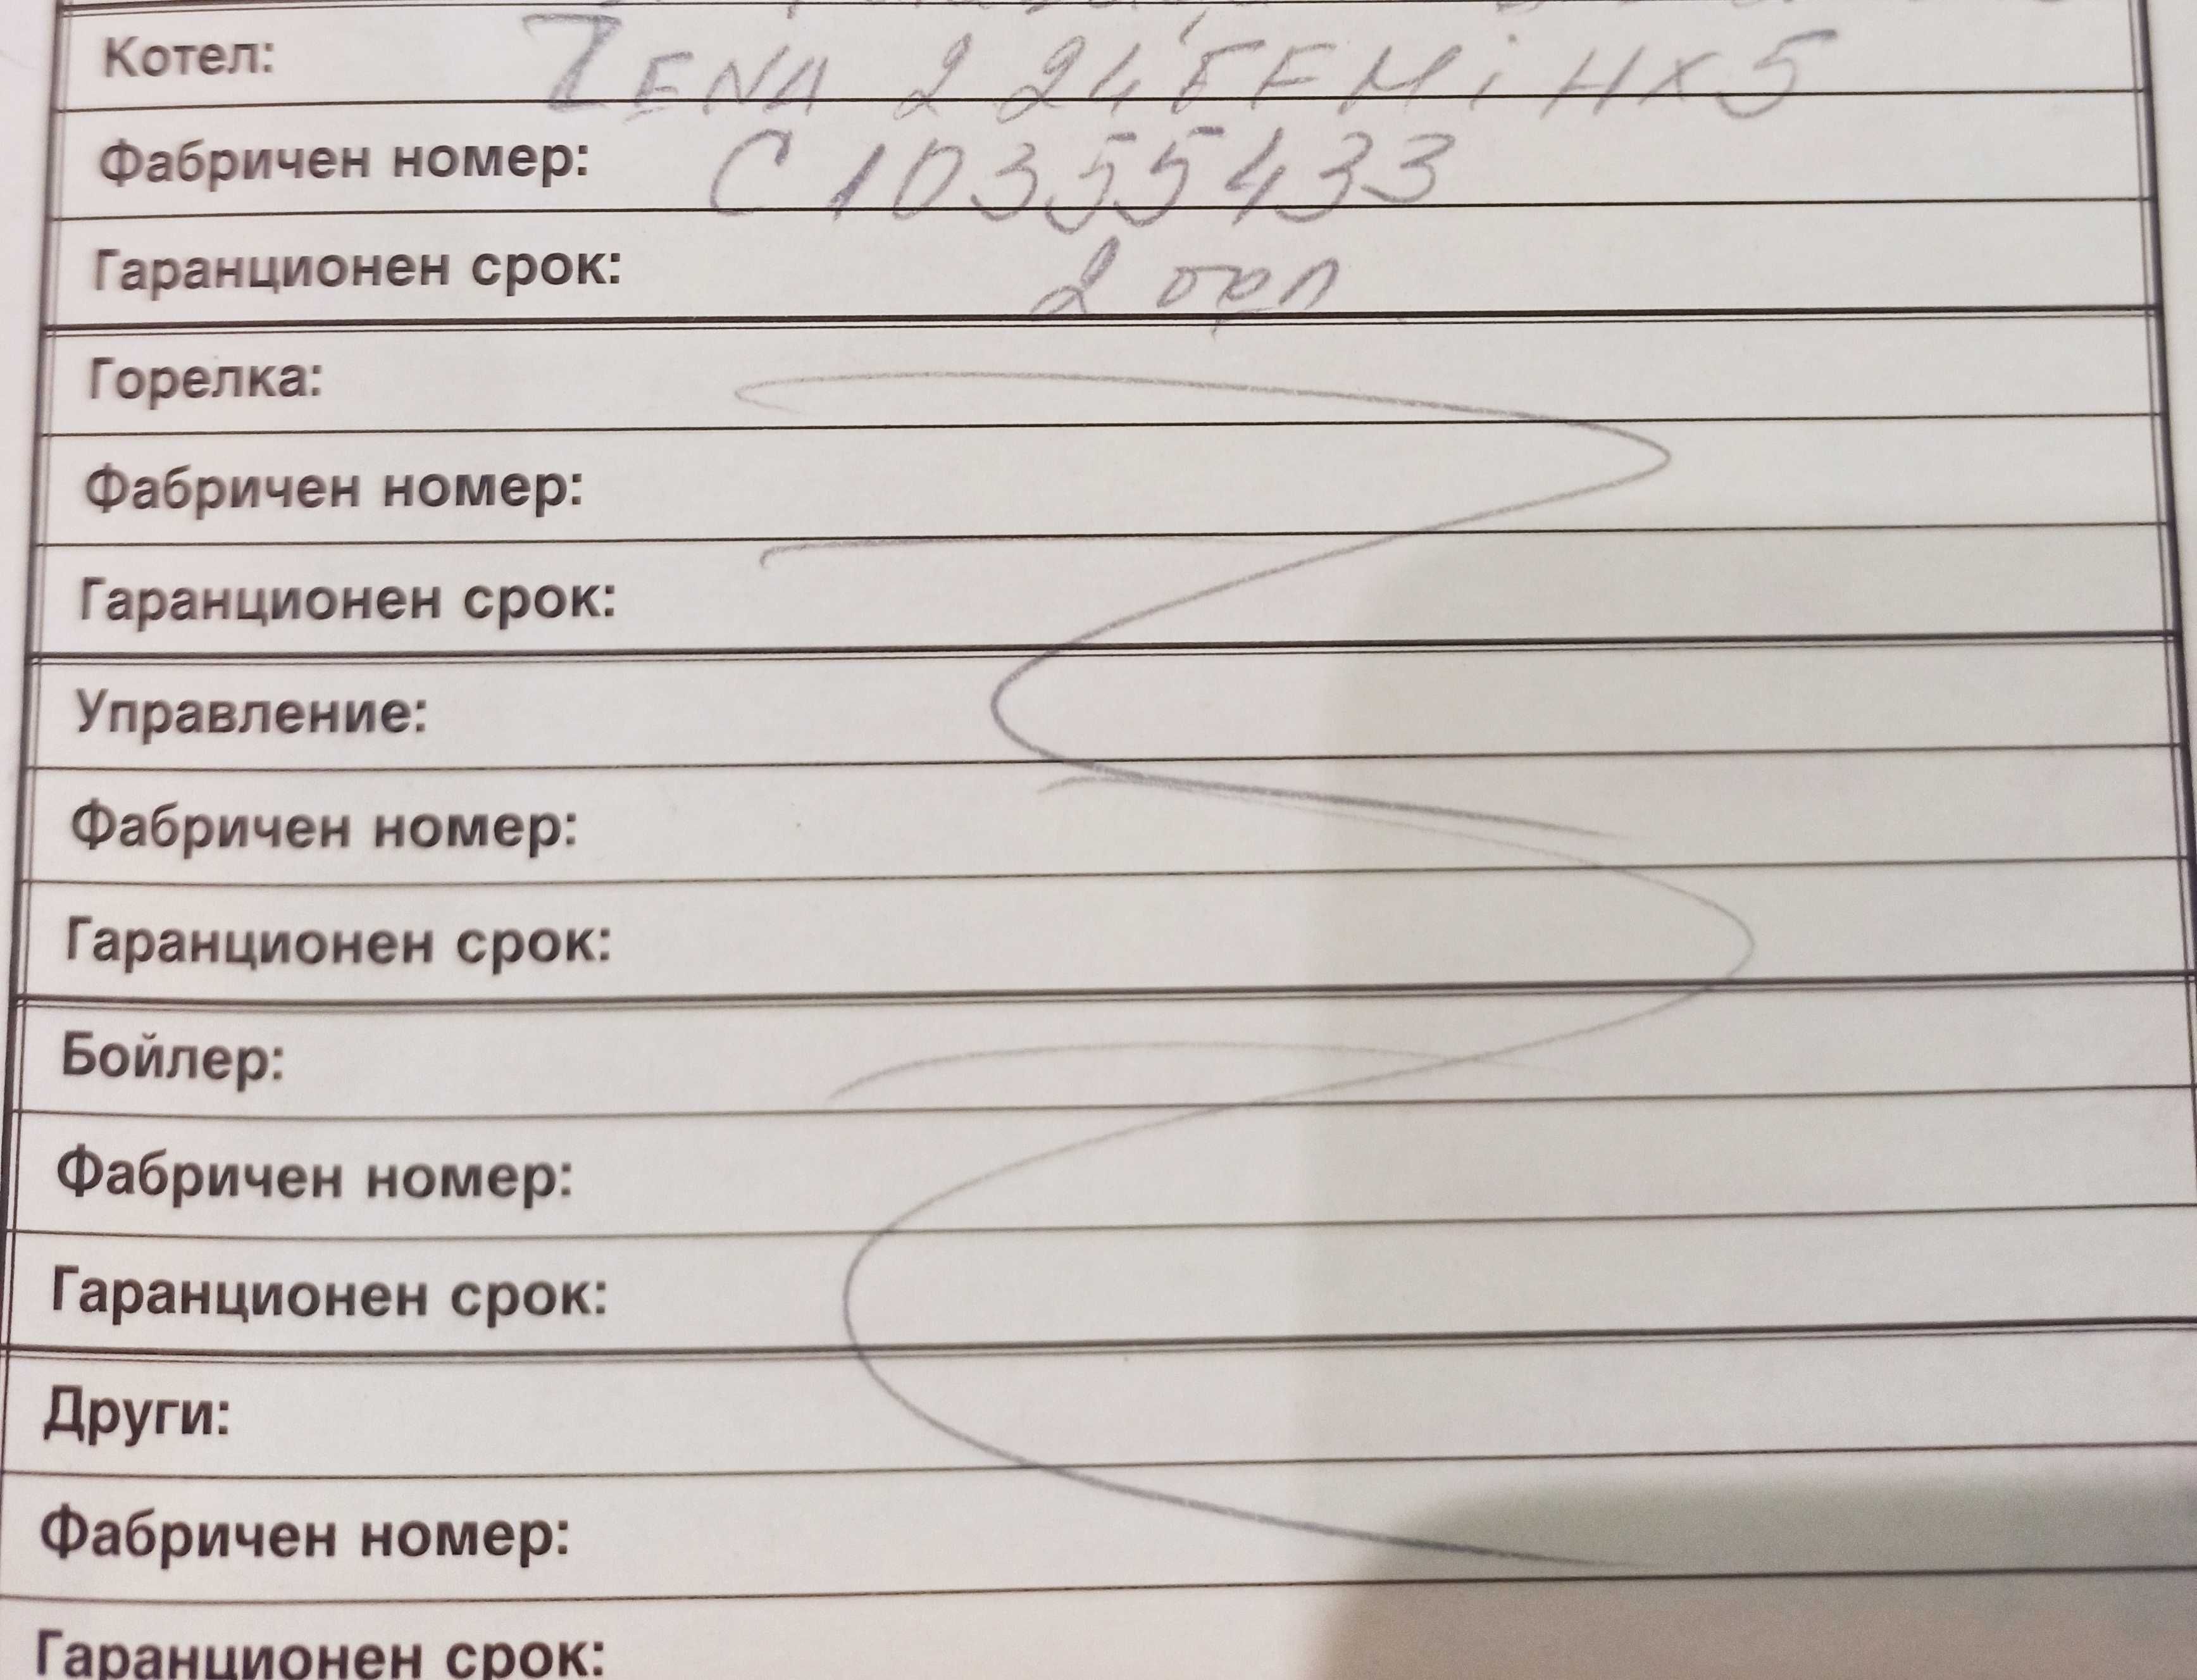 Котел: ZENA 2 24 FF Mi HX5
Фабричен номер: C 10355433
Гаранционен срок: 2
Горелка:
Фабричен номер:
Гаранционен срок:
Управление:
Фабричен номер:
Гаранционен срок:
Бойлер:
Фабричен номер:
Гаранционен срок:
Други:
Фабричен номер:
Гаранционен срок: